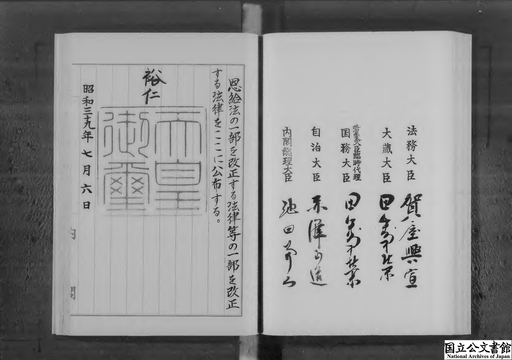 法務大臣 賀屋興宣
大蔵大臣 田中角榮
国務大臣 田中角榮
自治大臣 赤澤正道
内閣総理大臣 池田勇人
恩給法の一部を改正する法律等の一部を改正
する法律をここに公布する。
裕仁
天皇
御璽
昭和三十九年七月六日
国立公文書館
National Archives of Japan